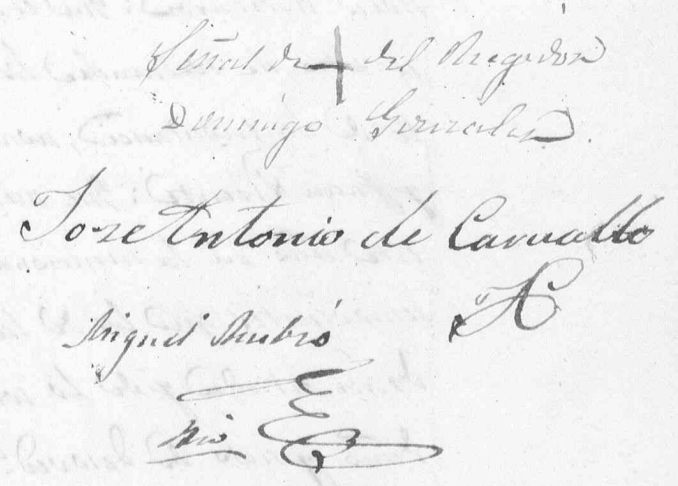 Señal de + del Regidor
Domingo Gonzales
Jose Antonio de Carvallo
Miguel Rubio